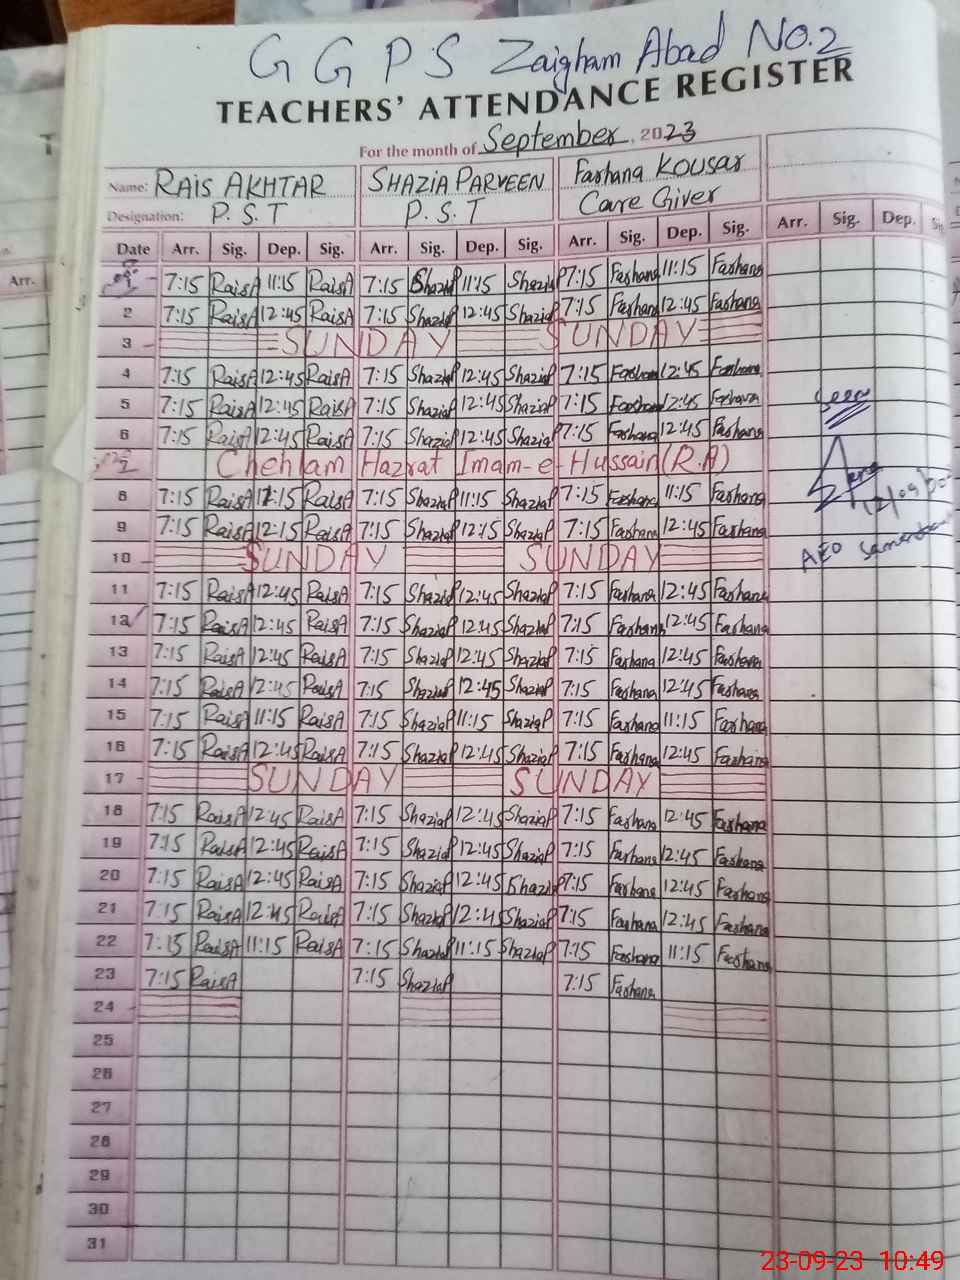 G G P S Zaigham Abad No.2
TEACHERS' ATTENDANCE REGISTER
For the month of September, 2023
Name: RAIS AKHTAR SHAZIA PARVEEN Farhana KOUSAR
Designation: P.S.T P.S.T Care Giver
Date Arr. Sig. Dep. Sig. Arr. Sig. Dep. Sig. Arr. Sig. Dep. Sig. Arr. Sig. Dep. Sig.
Arr.
7:15 RaisA 11:15 RaisA 7:15 ShaziaP 11:15 ShaziaP 7:15 Farhana 11:15 Farhana
2 7:15 RaisA 12:45 RaisA 7:15 ShaziaP 12:45 ShaziaP 7:15 Farhana 12:45 Farhana
3 SUNDAY SUNDAY
4 7:15 RaisA 12:45 RaisA 7:15 ShaziaP 12:45 ShaziaP 7:15 Farhana 12:45 Farhana
5 7:15 RaisA 12:45 RaisA 7:15 ShaziaP 12:45 ShaziaP 7:15 Farhana 12:45 Farhana
Seen
6 7:15 RaisA 12:45 RaisA 7:15 ShaziaP 12:45 ShaziaP 7:15 Farhana 12:45 Farhana
7 Chehlam Hazrat Imam-e-Hussain (R.A)
8 7:15 RaisA 11:15 RaisA 7:15 ShaziaP 11:15 ShaziaP 7:15 Farhana 11:15 Farhana
9 7:15 RaisA 12:15 RaisA 7:15 ShaziaP 12:15 ShaziaP 7:15 Farhana 12:45 Farhana
10 SUNDAY SUNDAY
AEO
11 7:15 RaisA 12:45 RaisA 7:15 ShaziaP 12:45 ShaziaP 7:15 Farhana 12:45 Farhana
12 7:15 RaisA 12:45 RaisA 7:15 ShaziaP 12:45 ShaziaP 7:15 Farhana 12:45 Farhana
13 7:15 RaisA 12:45 RaisA 7:15 ShaziaP 12:45 ShaziaP 7:15 Farhana 12:45 Farhana
14 7:15 RaisA 12:45 RaisA 7:15 ShaziaP 12:45 ShaziaP 7:15 Farhana 12:45 Farhana
15 7:15 RaisA 11:15 RaisA 7:15 ShaziaP 11:15 ShaziaP 7:15 Farhana 11:15 Farhana
16 7:15 RaisA 12:45 RaisA 7:15 ShaziaP 12:45 ShaziaP 7:15 Farhana 12:45 Farhana
17 SUNDAY SUNDAY
18 7:15 RaisA 12:45 RaisA 7:15 ShaziaP 12:45 ShaziaP 7:15 Farhana 12:45 Farhana
19 7:15 RaisA 12:45 RaisA 7:15 ShaziaP 12:45 ShaziaP 7:15 Farhana 12:45 Farhana
20 7:15 RaisA 12:45 RaisA 7:15 ShaziaP 12:45 ShaziaP 7:15 Farhana 12:45 Farhana
21 7:15 RaisA 12:45 RaisA 7:15 ShaziaP 12:45 ShaziaP 7:15 Farhana 12:45 Farhana
22 7:15 RaisA 11:15 RaisA 7:15 ShaziaP 11:15 ShaziaP 7:15 Farhana 11:15 Farhana
23 7:15 RaisA 7:15 ShaziaP 7:15 Farhana
24
25
26
27
28
29
30
31
23-09-23 10:49